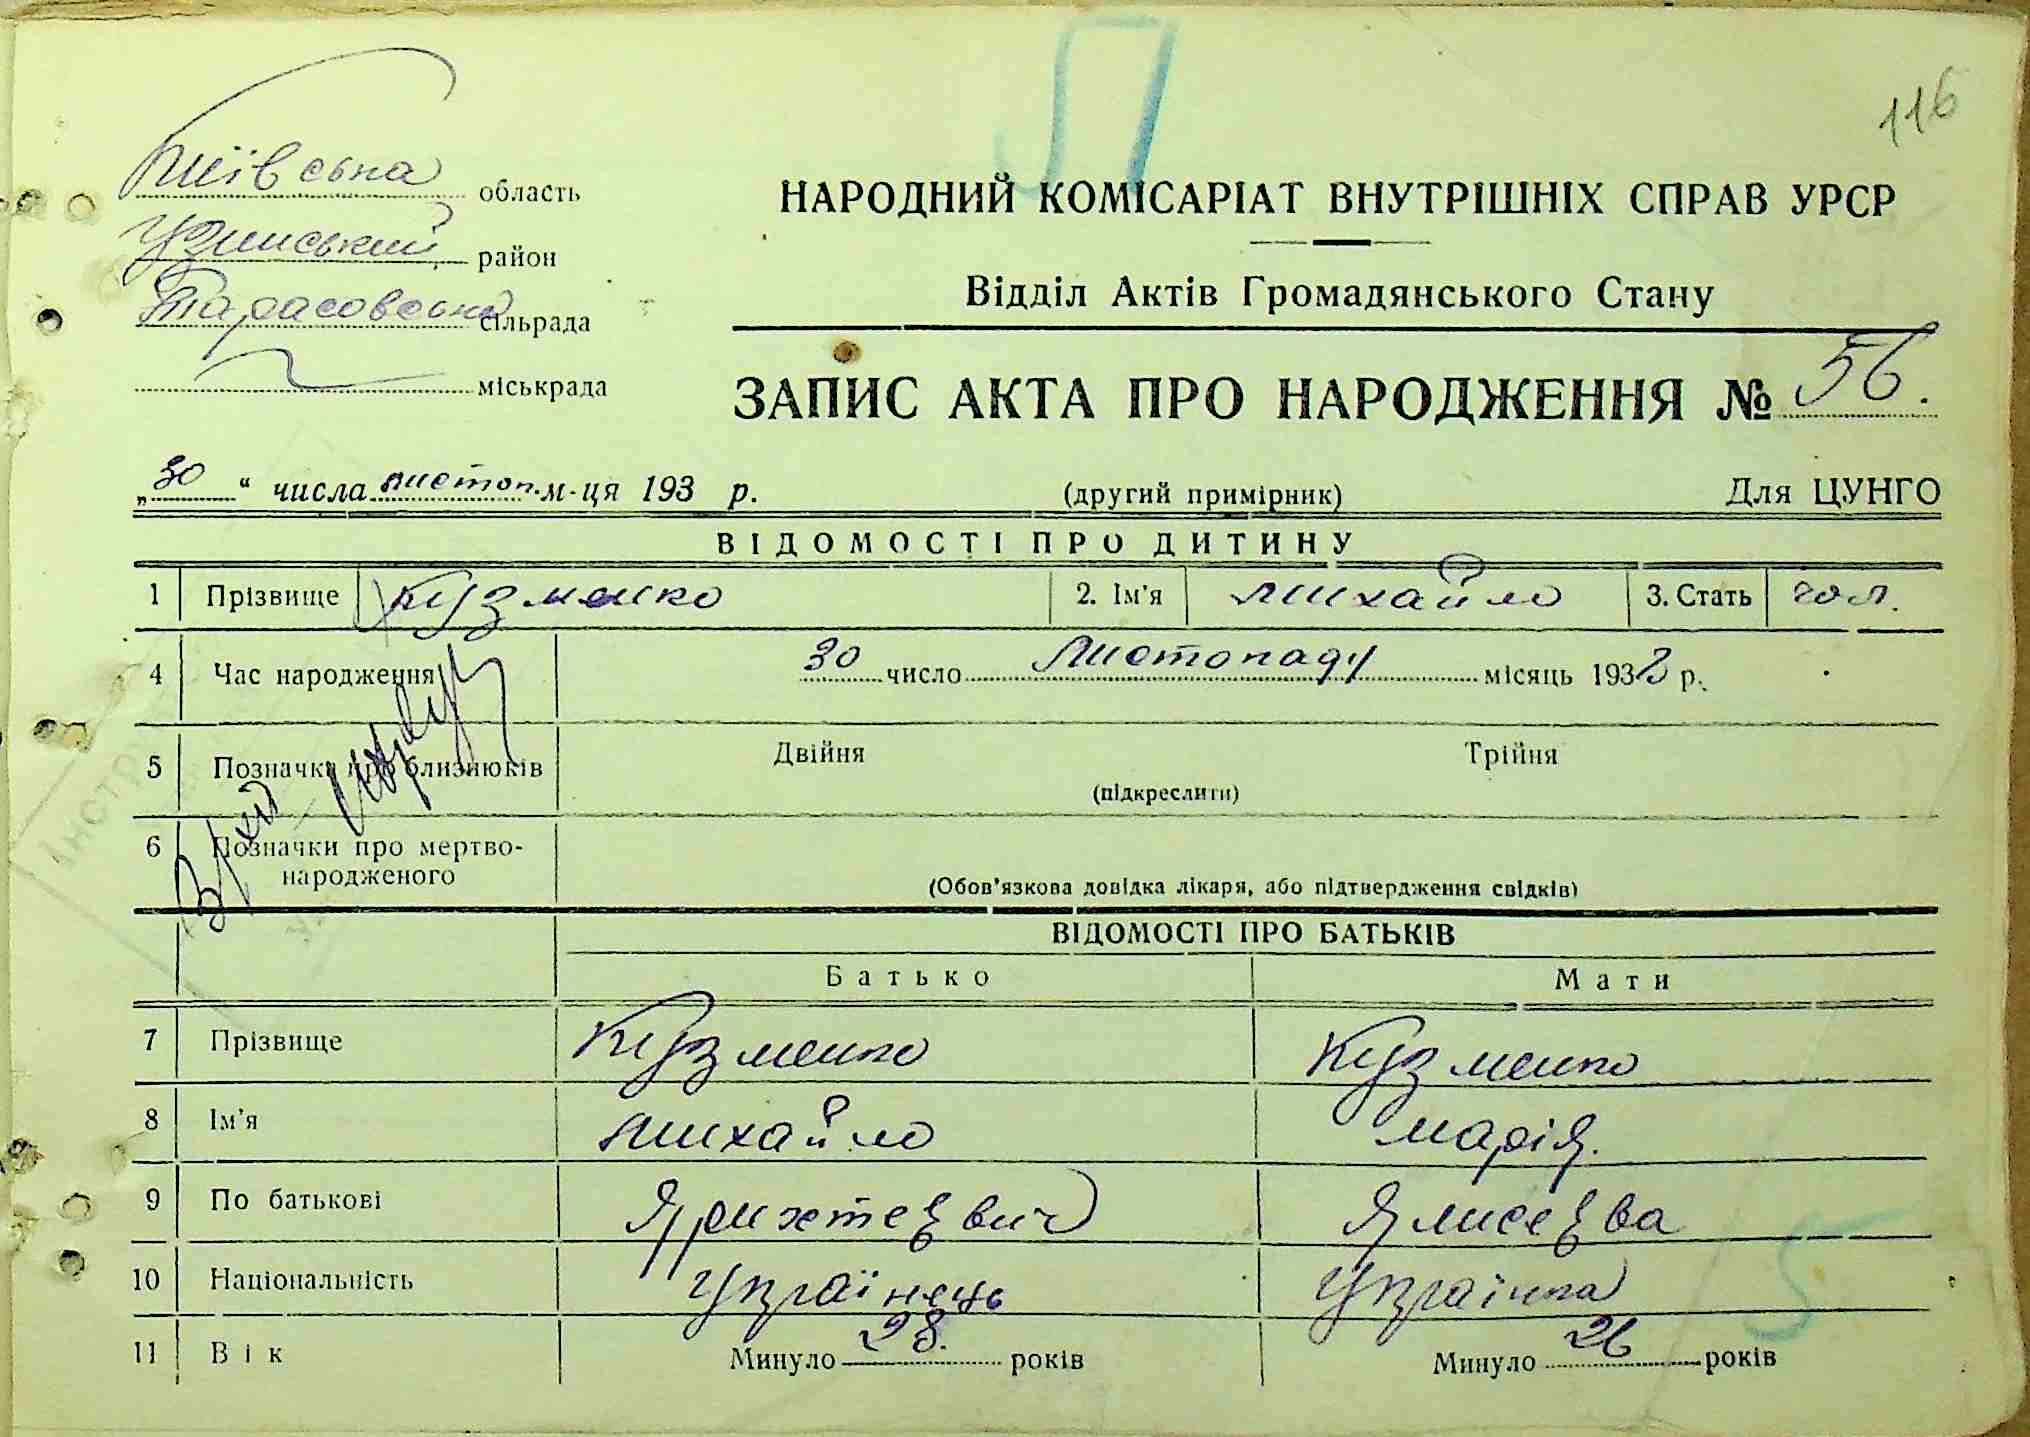 П
116
Київська область
Узинський район
Тарасовська сільрада
міськрада
НАРОДНИЙ КОМІСАРІАТ ВНУТРІШНІХ СПРАВ УРСР
Відділ Актів Громадянського Стану
ЗАПИС АКТА ПРО НАРОДЖЕННЯ № 56.
„30" числа листоп. м-ця 193 р. (другий примірник) Для ЦУНГО
ВІДОМОСТІ ПРО ДИТИНУ
1 Прізвище Кузменко 2. Ім'я Михайло 3. Стать чол.
4 Час народження 30 число Листопаду місяць 193 р.
5 Позначки про близнюків Двійня Трійня
(підкреслити)
6 Позначки про мертво-
народженого
(Обов'язкова довідка лікаря, або підтвердження свідків)
ВІДОМОСТІ ПРО БАТЬКІВ
Батько Мати
7 Прізвище Кузменко Кузменко
8 Ім'я Михайло Марія.
9 По батькові Ялисеєва
10 Національність Українець Українка
11 Вік Минуло 28. років Минуло 26 років